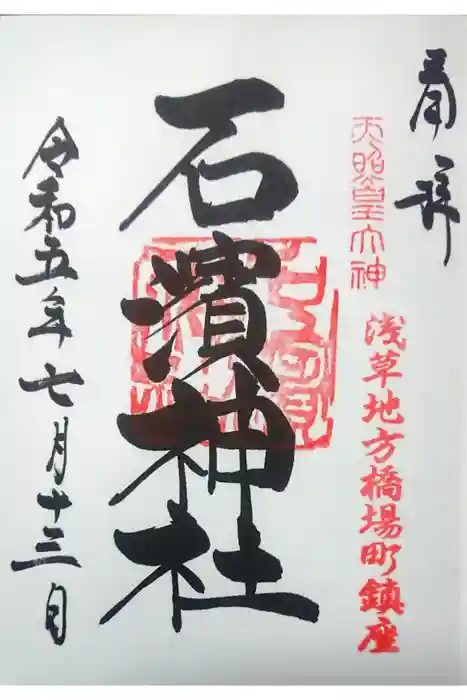 奉拝
天照皇大神
浅草地方橋場町鎮座
石濱神社
令和五年七月十三日